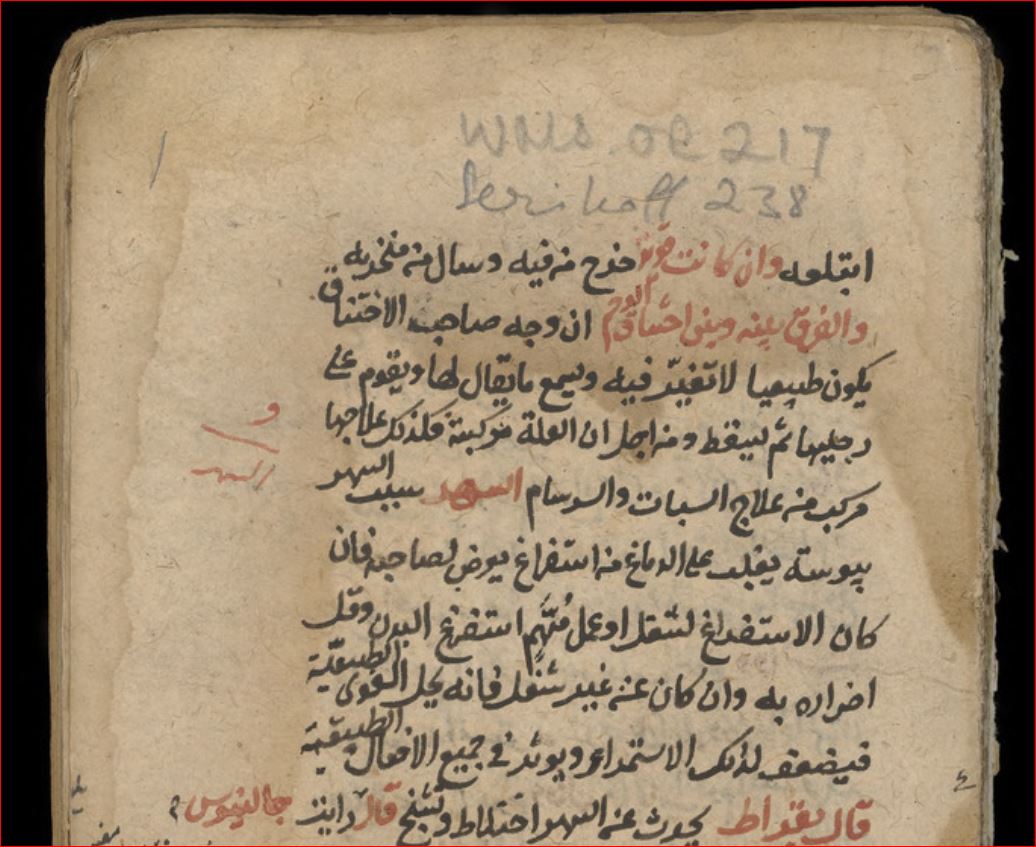 WMS. OR 217
Serikoff 238
ابتلعه وان كانت قوية خرج من فيه وسال من منخريه
والفرق بينه وبين اختناق الرحم ان وجه صاحب الاختناق
يكون طبيعيا لا تغيّر فيه ويسمع ما يقال لها ويقوم على
رجليها ثم ليسقط ومن اجل ان العلة مركبة فلذلك علاجها
و
السهر
مركب من علاج السبات والسرسام السهر سبب السهر
يبوسته يغلب على الدماغ من استفراغ يعرض لصاحبه فان
كان الاستفراغ لشغل او عمل استفرغ البدن وقل
اضراره به وان كان عن غير شغل فانه يحل القوى الطبيعية
فيضعف لذلك الاستمراء ويوثر في جميع الافعال الطبيعية
قال بقراط يحدث عن السهر اختلاط وتشنج قال جالينوس